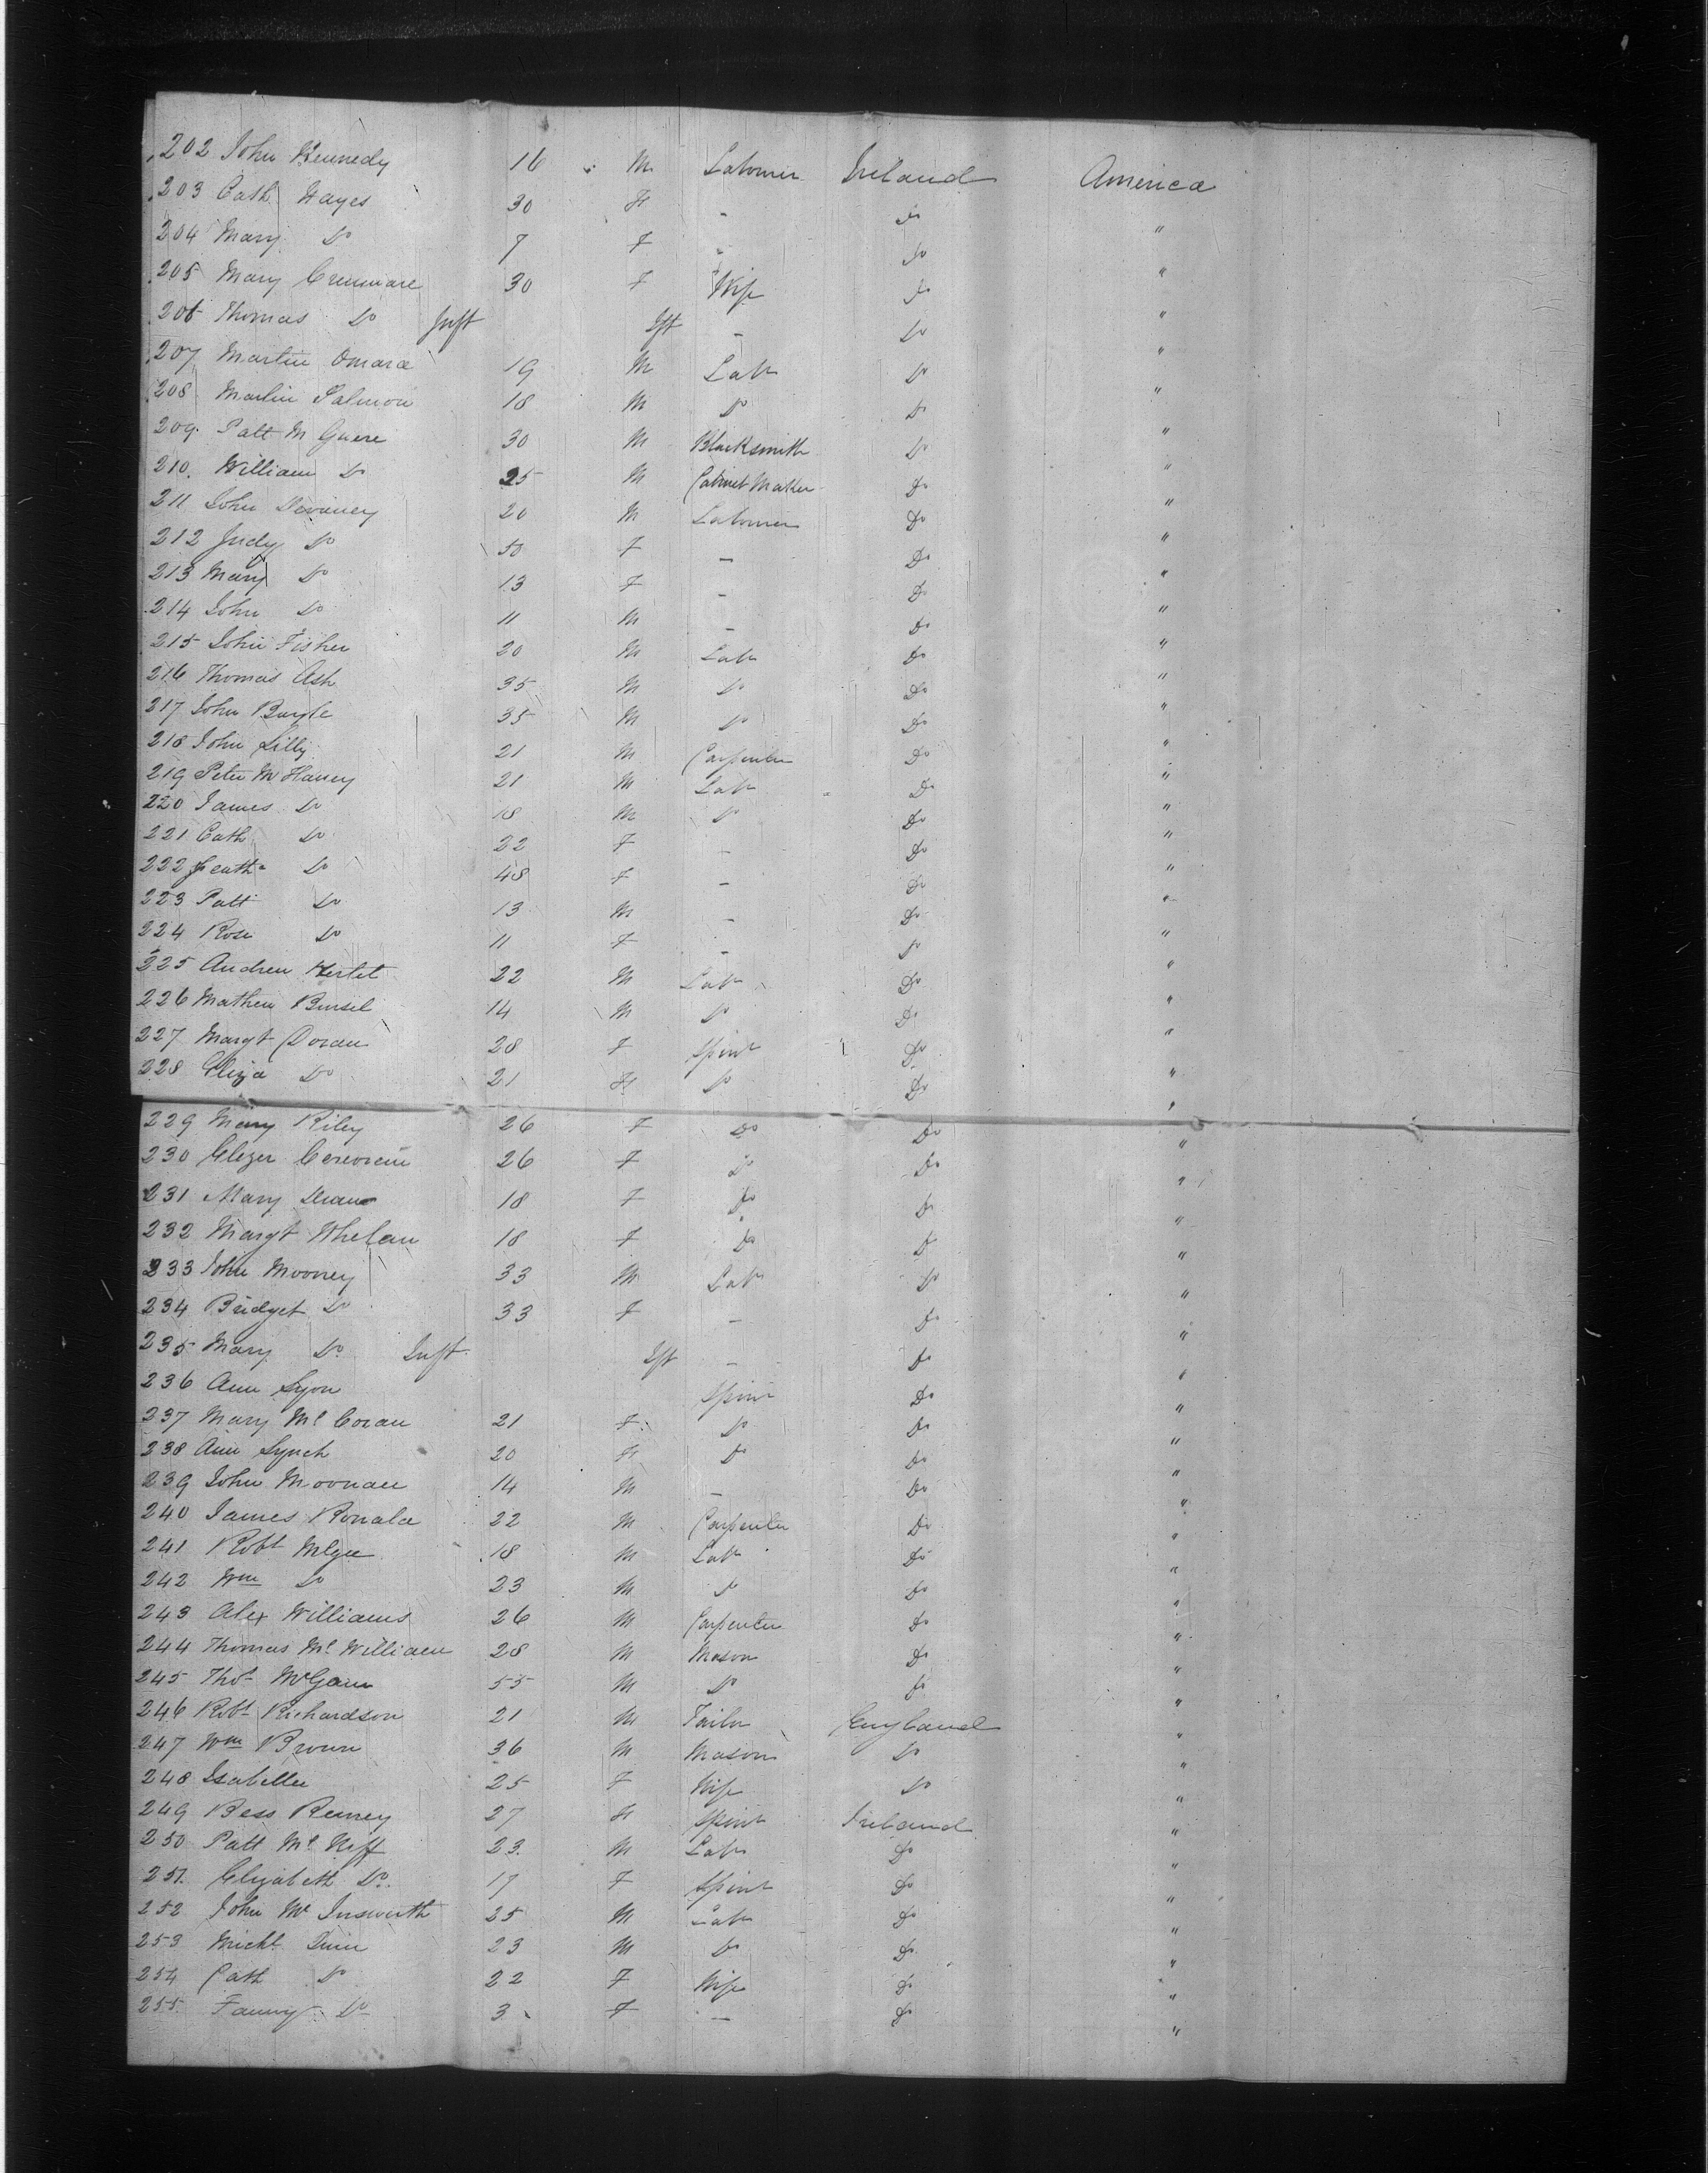 202 John Kennedy 16 M Labourer Ireland America
203 Cath Hayes 30 F - Do "
204 Mary Do 7 F - Do "
205 Mary 30 F Wife Do "
206 Thomas Do Inft Ift - Do "
207 Martin Omara 19 M Labr Do "
208 Martin Salmon 18 M Do Do "
209. Patt McGuere 30 M Blacksmith Do "
210. William Do 25 M Cabinet Maker Do "
211 John Devaney 20 M Labourer Do "
212 Judy Do 50 F - Do "
213 Mary Do 13 F - Do "
214 John Do 11 M - Do "
215 John Fisher 20 M Labr Do "
216 Thomas Ash 35 M Do Do "
217 John Boyle 35 M Do Do "
218 John Lilly 21 M Carpenter Do "
219 Peter McHaney 21 M Labr Do "
220 James Do 18 M Do Do "
221 Cath Do 22 F - Do "
222 Do 48 F - Do "
223 Patt Do 13 M - Do "
224 Rose Do 11 F - Do "
225 Andrew 22 M Labr Do "
226 Mathew 14 M Do Do "
227 Margt Doran 28 F Spinr Do "
228 Eliza Do 21 F Do Do "
229 Mary Riley 26 F Do Do "
230 26 F Do Do "
231 Mary 18 F Do Do "
232 Margt Whelan 18 F Do Do "
233 John Mooney 33 M Labr Do "
234 Bridget Do 33 F - Do "
235 Mary Do Inft Ift - Do "
236 Ann Lyon Spinr Do "
237 Mary Mc Coran 21 F Do Do "
238 Ann Lynch 20 F Do Do "
239 John Moonan 14 M - Do "
240 James Ronala 22 M Carpenter Do "
241 Robt McGee 18 M Labr Do "
242 Wm Do 23 M Do Do "
243 Alex Williams 26 M Carpenter Do "
244 Thomas Mc William 28 M Mason Do "
245 Thos 55 M Do Do "
246 Robt Richardson 21 M Tailor England "
247 Wm Brown 36 M Mason Do "
248 Isabella 25 F Wife Do "
249 Bess 27 F Spinr Ireland "
250 Patt Mc Niff 23 M Labr Do "
251. Elizabeth Do. 17 F Spinr Do "
252 John Mc 25 M Labr Do "
253 Michl 23 M Do Do "
254 Cath Do 22 F Wife Do "
255 Fanny Do 3 F - Do "